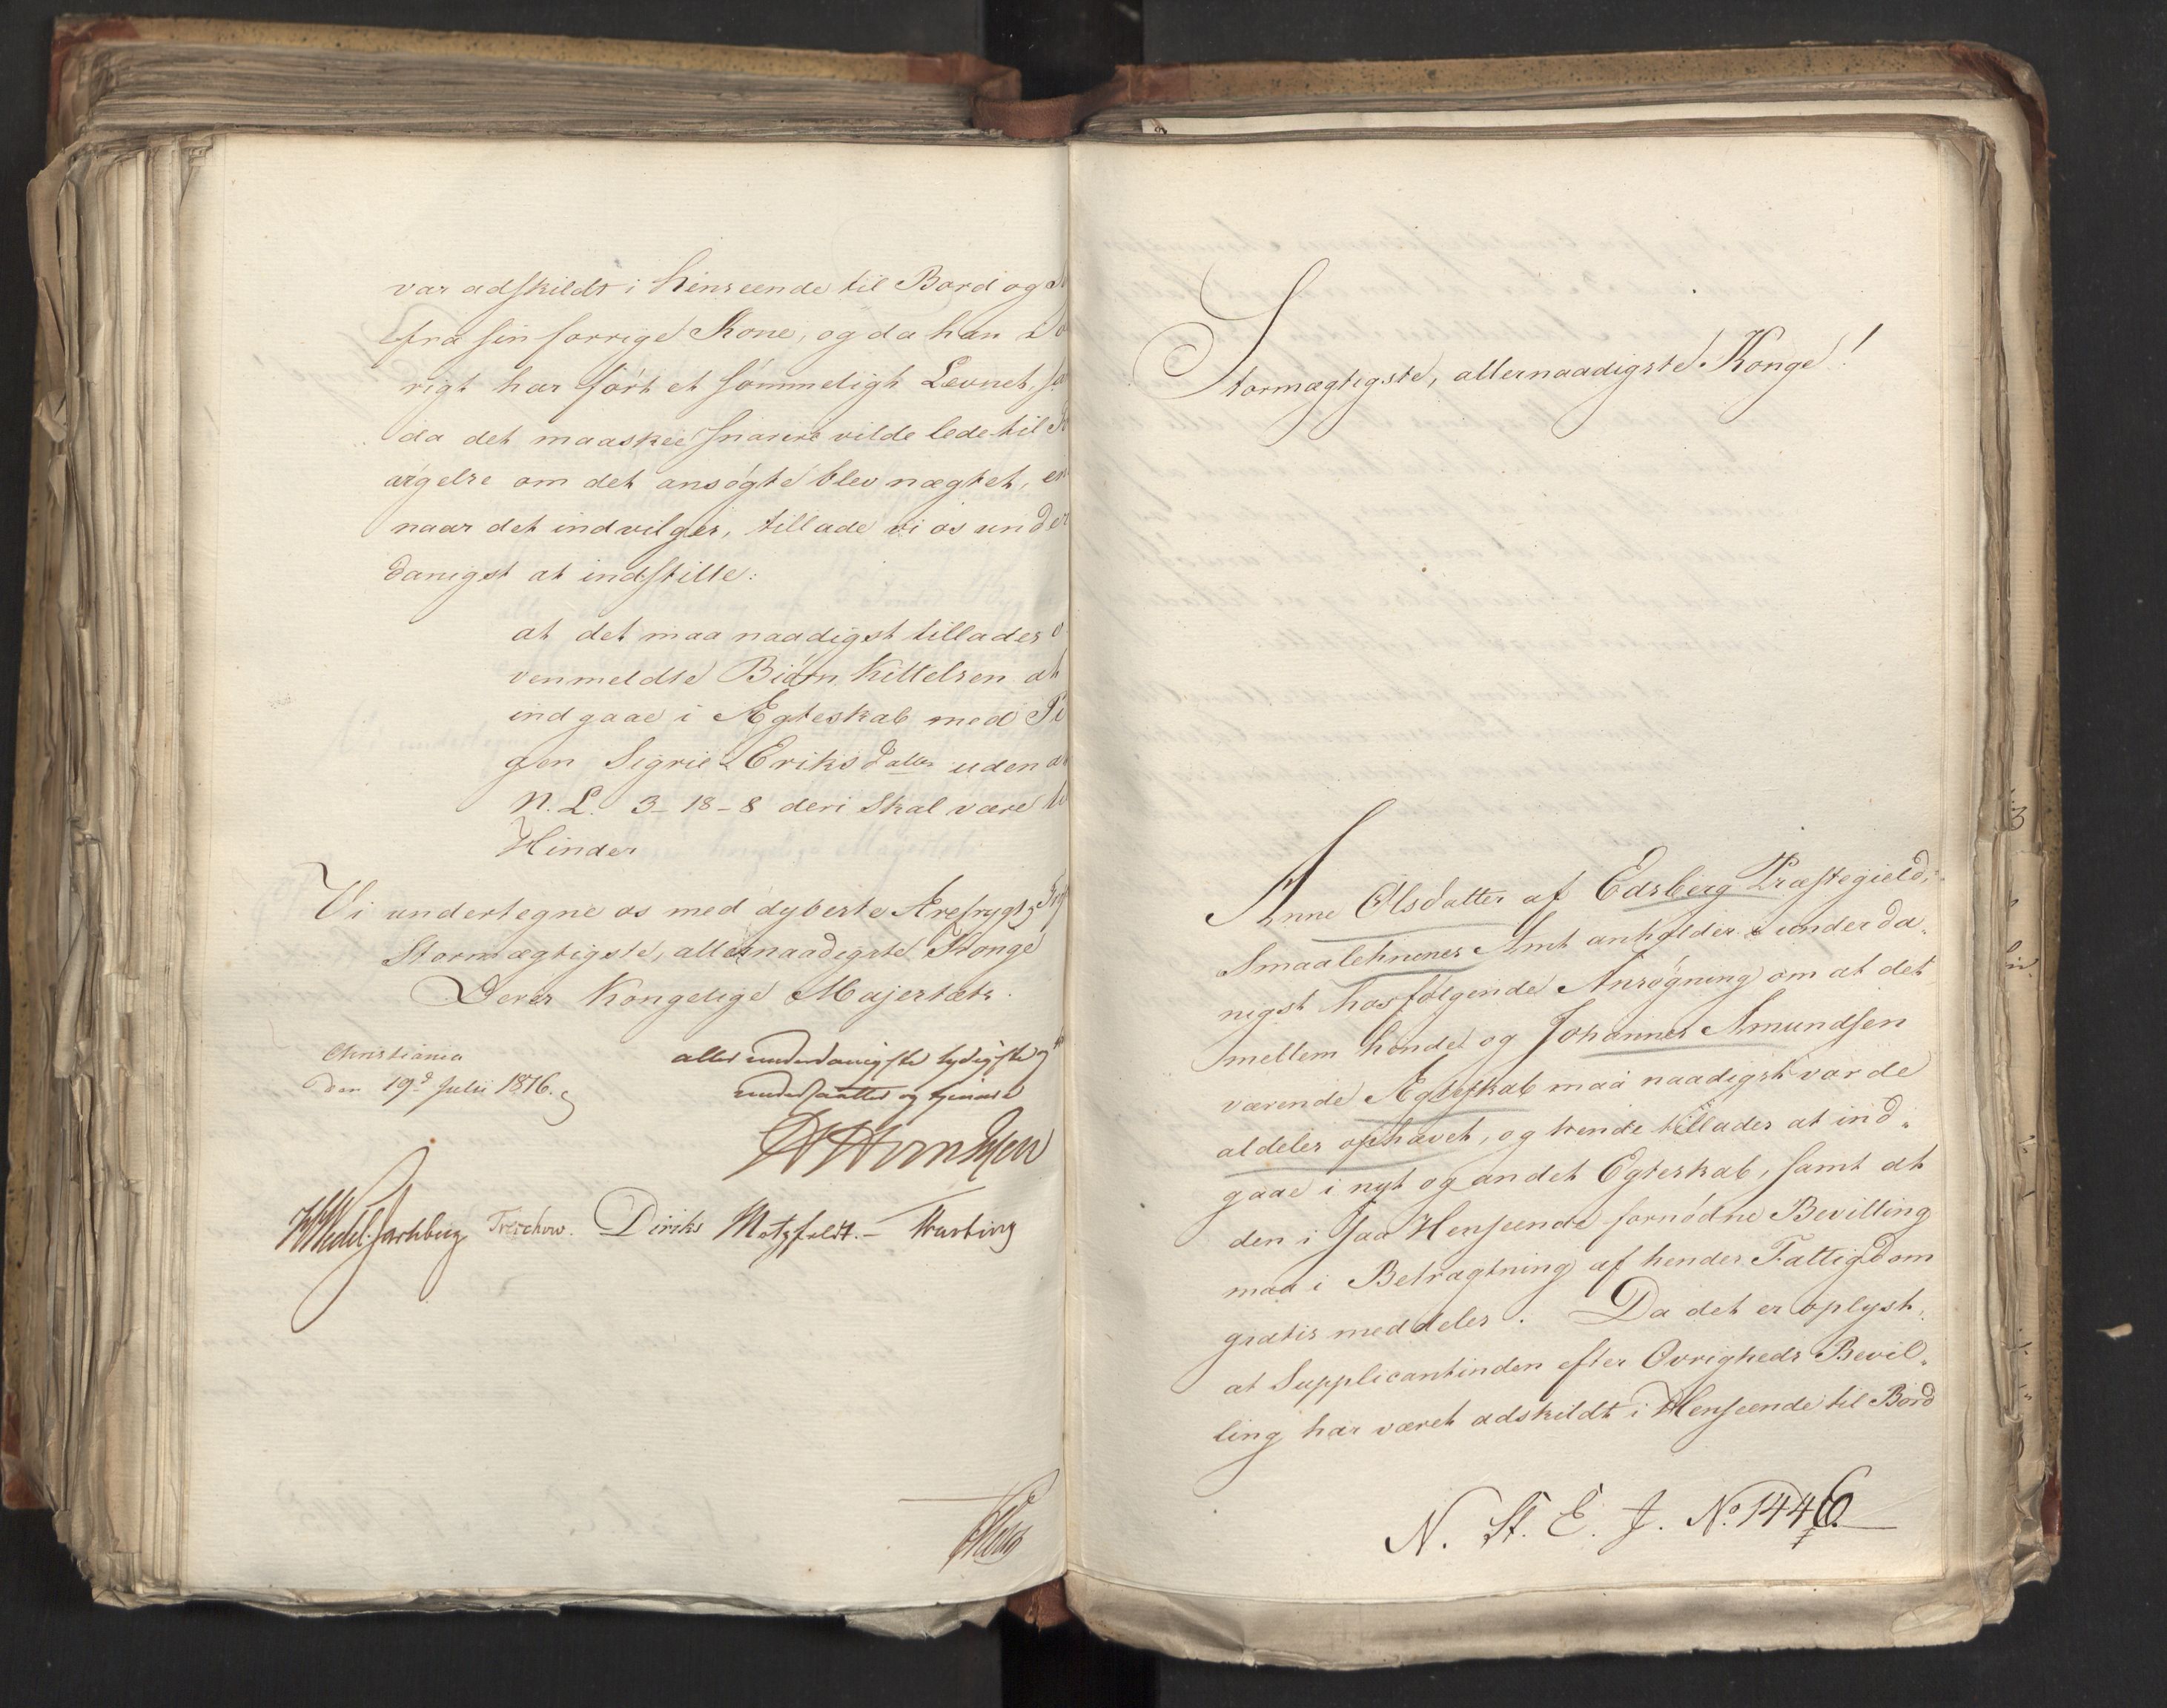 var adskildt i Henseende til Bord og
fra sin forrige Kone, og da han
rigt har ført et sømmeligt Levnet,
da det maaskee snarere vilde lede til
argelse om det ansøgte blev nægtet, en
naar det indvilges, tillade vi os under
danigst at indstille:
at det maa naadigst tillades o
venmeldte Biørn Kittelsen at
indgaae i Ægteskab med Pi
gen Sigrie Eriksdatter uden at
N. L. 3-18-8 deri skal være til
Hinder
Vi undertegne os med dybeste Ærefrygt
Stormægtigste, allernaadigste Konge
Deres Kongelige Majestæts
Christiania
den 19d Julii 1816.
allerunderdanigste lydigste og
undersaatter og tjenere
M Sommerhjelm
HWedel-Jarlsberg Treschow. Diriks Motzfeldt.-
Stormægtigste, allernaadigste Konge!
Anne Olsdatter af Edsberg Præstegield,
Smaalehnenes Amt anholder i underda-
nigst hosfølgende Ansøgning om at det
mellem hende og Johannes Amundsen
værende Ægteskab maa naadigst vorde
aldeles ophævet, og hende tillades at ind-
gaae i nyt og andet Egteskab, samt at
den i saa Henseende fornødne Bevilling
maa i Betragtning af hendes Fattigdom
gratis meddeles. Da det er oplyst,
at Supplicantinden efter Øvrigheds Bevil-
ling har været adskildt i Henseende til Bord
N. St. E. J. No. 1446.